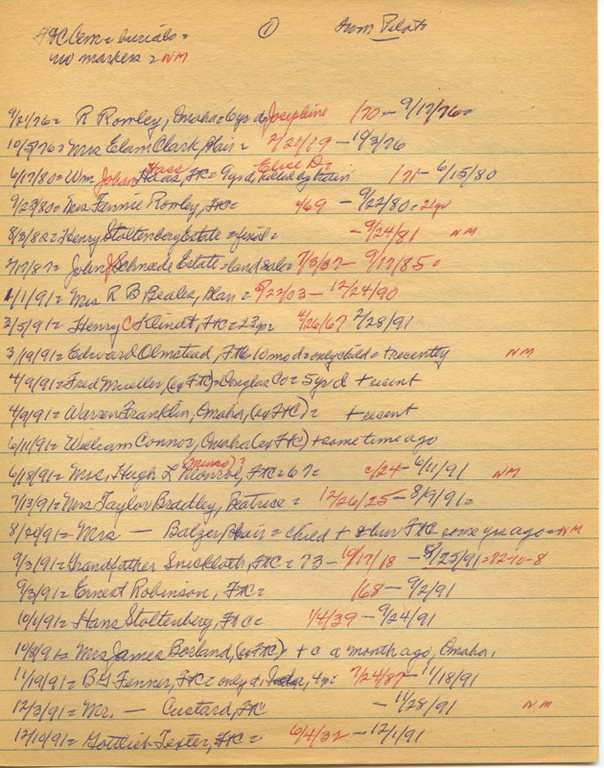 Ft C Cem = burials = ① from Pilot
no markers = NM
9/21/76 = R Rowley, Omaha = 6 yr d. Josephine /70 - 9/17/76 =
10/5/76 = Mrs Elam Clark, Blair = 2/22/19 - 10/3/76
Hass Elise D?
6/17/80 = Wm. Johan Haas, FtC = 9 yr d, killed by train /71 - 6/15/80
9/23/80 = Mrs Fannie Rowley, FtC = 4/69 - 9/22/80 = 21yr
8/3/82 = Henry Stoltenberg Estate = final = - 9/24/81 NM
7/17/87 = John J Schneide Estate = land sale = 7/3/37 - 9/17/85 =
1/1/91 = Mrs R B Beales, Blair = 5/22/03 - 12/24/90
3/5/91 = Henry C Klindt, FtC = 23 yr 4/26/67 2/28/91
3/19/91 = Edward Olmstead, FtC = 10 mo d = only child = + recently NM
4/9/91 = Fred Mueller, (ex FtC) = Douglas Co = 5 yr d + recent
4/9/91 = Warren Franklin, Omaha, (ex FtC) = + recent
6/11/91 = William Connor, Omaha (ex FtC) + some time ago
(Munro)?
6/18/91 = Mrs. Hugh L Monroe, FtC = 67 = c/24 - 6/11/91 NM
7/13/91 = Mrs Taylor Bradley, Beatrice = 12/26/25 - 8/7/91 =
8/20/91 = Mrs — Balzer, Blair = child + & bur FtC some yrs ago = NM
9/3/91 = Grandfather Snickloth, FtC = 73 - 10/17/18 - 8/25/91 = 72-10-8
9/3/91 = Ernest Robinson, FtC = /68 - 9/2/91
10/1/91 = Hans Stoltenberg, FtC = 1/4/39 - 9/24/91
10/8/91 = Mrs James Borland, (ex FtC) + c a month ago, Omaha,
11/19/91 = B G Fenner, FtC = only d. 4 yr = 7/24/87 - 11/18/91
12/3/91 = Mr. — Custard, FtC - 11/28/91 NM
12/10/91 = Gottlieb Texter, FtC = 6/4/32 - 12/1/91